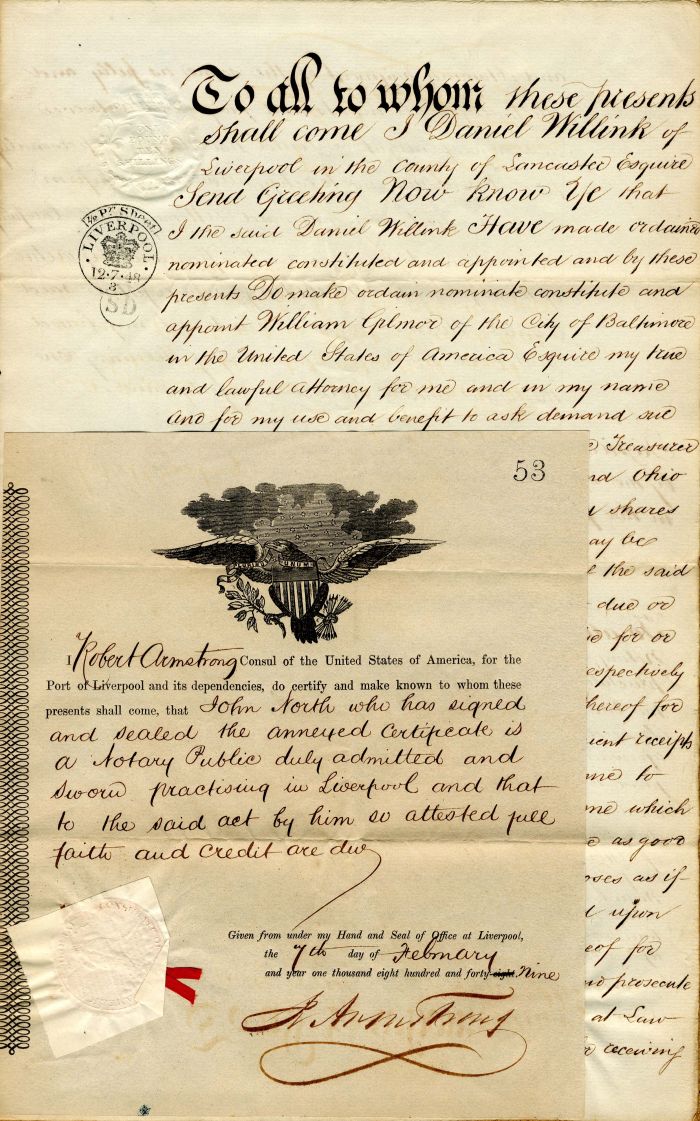 To all to whom these presents
shall come I Daniel Willink of
Liverpool in the County of Lancaster Esquire
Send Greeting Now know Ye that
I the said Daniel Willink Have made ordained
nominated constituted and appointed and by these
presents Do make ordain nominate constitute and
appoint William Gilmor of the City of Baltimore
in the United States of America Esquire my true
and lawful Attorney for me and in my name
And for my use and benefit to ask demand sue
Treasurer
Ohio
shares
ay be
the said
due or
for or
espectively
hereof for
ient receipts
me to
me which
as good
oses as if
upon
eof for
prosecute
at Law
receiving
Pr Sheet
LIVERPOOL
12.7.48
3
SD
53
I Robert Armstrong Consul of the United States of America, for the
Port of Liverpool and its dependencies, do certify and make known to whom these
presents shall come, that John North who has signed
and sealed the annexed Certificate is
a Notary Public duly admitted and
sworn practising in Liverpool and that
to the said act by him so attested full
faith and credit are due
Given from under my Hand and Seal of Office at Liverpool,
the 7th day of February
and year one thousand eight hundred and forty-eight Nine
R Armstrong